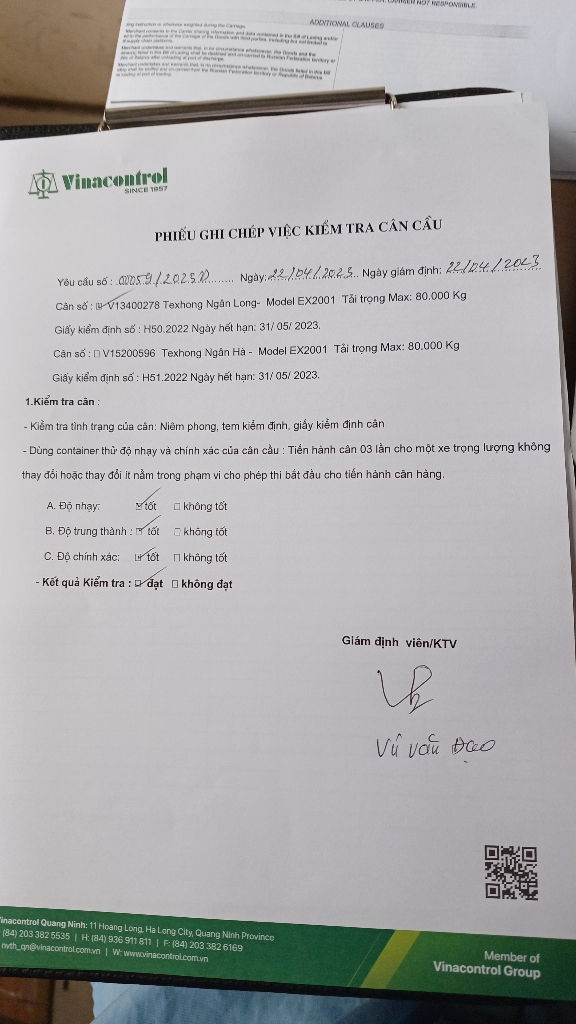 CARRIER NOT RESPONSIBLE.
ADDITIONAL CLAUSES
Vinacontrol
SINCE 1957
PHIẾU GHI CHÉP VIỆC KIỂM TRA CÂN CẦU
Yêu cầu số : 00059/2023 Ngày: 22/04/2023 Ngày giám định: 22/04/2023
Cân số : V13400278 Texhong Ngân Long- Model EX2001 Tải trọng Max: 80.000 Kg
Giấy kiểm định số : H50.2022 Ngày hết hạn: 31/ 05/ 2023.
Cân số : □ V15200596 Texhong Ngân Hà - Model EX2001 Tải trọng Max: 80.000 Kg
Giấy kiểm định số : H51.2022 Ngày hết hạn: 31/ 05/ 2023.
1.Kiểm tra cân :
- Kiểm tra tình trạng của cân: Niêm phong, tem kiểm định, giấy kiểm định cân
- Dùng container thử độ nhạy và chính xác của cân cầu : Tiến hành cân 03 lần cho một xe trọng lượng không
thay đổi hoặc thay đổi ít nằm trong phạm vi cho phép thì bắt đầu cho tiến hành cân hàng.
A. Độ nhạy: ☑ tốt □ không tốt
B. Độ trung thành : ☑ tốt □ không tốt
C. Độ chính xác: ☑ tốt □ không tốt
- Kết quả Kiểm tra : ☑ đạt □ không đạt
Giám định viên/KTV
Vũ Văn Đạo
Vinacontrol Quang Ninh: 11 Hoang Long, Ha Long City, Quang Ninh Province
(84) 203 382 5535 | H: (84) 936 911 811 | F: (84) 203 382 6169
nvth_qn@vinacontrol.com.vn | W: www.vinacontrol.com.vn
Member of
Vinacontrol Group